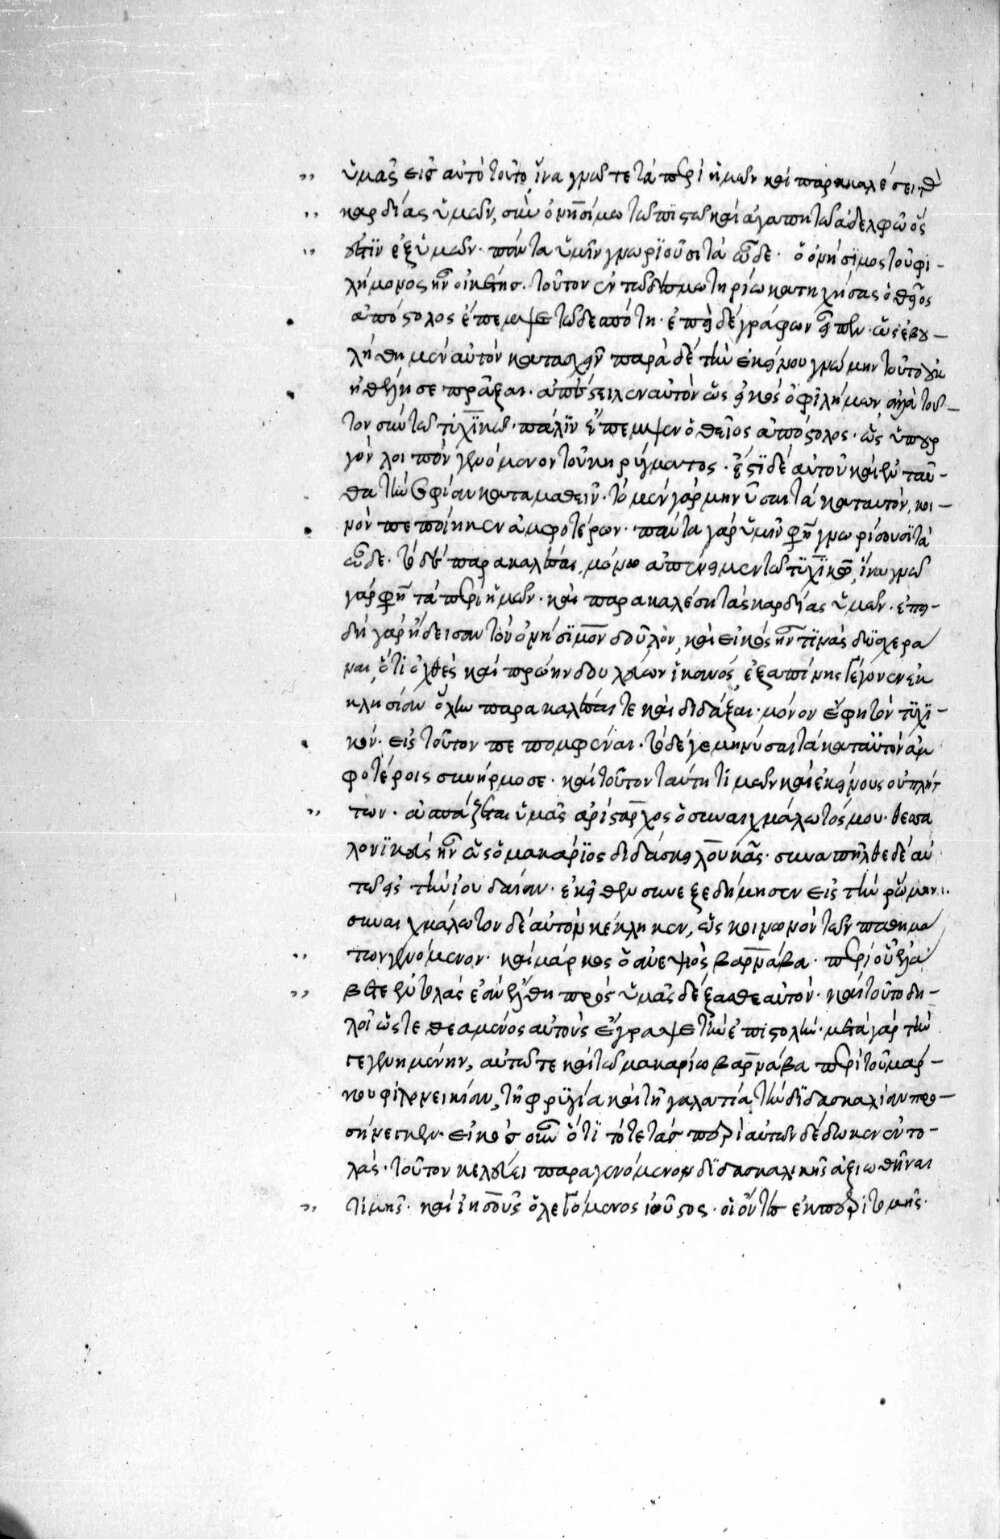 ὑμᾶς εἰς αὐτὸ τοῦτο, ἵνα γνῶτε τὰ περὶ ἡμῶν καὶ παρακαλέσει τὰς
καρδίας ὑμῶν, σὺν ὀνησίμω τῶ πιστῶ καὶ ἀγαπητῶ ἀδελφῶ ὅς
ἐστὶν ἐξ ὑμῶν· πάντα ὑμῖν γνωριοῦσι τὰ ὧδε· ὁ ὀνήσιμος τοῦ φι-
λήμονος ἦν οἰκέτης· τοῦτον ἐν τῶ δεσμωτηρίω κατηχήσας ὁ θεῖος
ἀπόστολος ἔπεμψε τῶ δεσπότη· ἐπ δὲ γράφων εἶπεν· ὡς ἐβου-
λήθημεν αὐτὸν κατασχεῖν παρὰ δὲ τὴν ἐκείνου γνώμην τοῦτο οὐκ
ἠθέλησε πρᾶξαι· ἀπέστειλεν αὐτὸν ὡς εἰκὸς ὁ φιλήμων, ἀλλὰ τοῦ-
τον σὺν τῶ τυχικῶ· πάλιν ἔπεμψεν ὁ θεῖος ἀπόστολος· ὡς ὑπουρ
γὸν λοιπὸν γενόμενον τοῦ κηρύγματος· ἔστι δὲ αὐτοῦ κἀν ταῦ-
θα τὴν σοφίαν καταμαθεῖν· τὸ μὲν γὰρ μηνῦσαι τὰ κατ αυτὸν, κοι-
νὸν πεποίηκεν ἀμφοτέρων· πάντα γὰρ ὑμῖν φησὶ γνωρίσουσι τὰ
ὧδε· τὸ δὲ παρακαλέσαι, μόνω ἀπένειμεν τῶ τυχικῶ, ἵνα γνῶ
γάρ φησι τὰ περὶ ἡμῶν· καὶ παρακαλέση τὰς καρδίας ὑμῶν· ἐπει-
δὴ γὰρ ἤδεισαν τὸν ὀνήσιμον δοῦλον, καὶ εἰκὸς ἦν τινὰς δυσχερᾶ
ναι, ὅτι ὁ χθὲς καὶ πρώην δουλεύων ἱκανός, ἐξαπίνης γέγονεν ἐκ
κλησίαν ὅλην παρακαλέσαι τε καὶ διδάξαι· μόνον ἔφη τὸν τυχι-
κὸν· εἰς τοῦτον πεπομφέναι· τὸ δέ γε μηνύσαι τὰ κατ αὐτὸν ἀμ
φοτέροις συνήρμοσε· καὶ τοῦτον ταύτη τιμῶν κἀκείνους οὐ πλήτ
των· ἀσπάζεται ὑμᾶς ἀρίσταρχος ὁ συναιχμάλωτός μου· θεσσα
λονικεὺς ἦν ὡς ὁ μακάριος διδάσκει λουκᾶς· συναπῆλθε δὲ αὐ
τῶ εἰς τὴν ἰουδαίαν· ἐκεῖθεν συνεξεδήμησεν εἰς τὴν ῥώμην·
συναιχμάλωτον δὲ αὐτὸν κέκληκεν, ὡς κοινωνὸν τῶν παθημά
των γενόμενον· καὶ μάρκος ὁ ἀνεψιὸς βαρνάβα· περὶ οὗ ἐλά
βετε ἐντολὰς ἐὰν ἔλθη πρὸς ὑμᾶς δέξασθε αὐτόν· καὶ τοῦτο δη-
λοῖ ὥς τεθεαμένος αὐτοὺς ἔγραψε τὴν ἐπιστολὴν· μετὰ γὰρ τὴν
γεγενημένην, αὐτῶ τε καὶ τῶ μακαρίω βαρνάβα περὶ τοῦ μάρ-
κου φιλονεικίαν, τῆ φρυγία καὶ τῆ γαλατία, τὴν διδασκαλίαν προ-
σήνεγκεν· εἰκὸς οὖν ὅτι τότε τὰς περὶ αὐτῶν δέδωκεν ἐντο-
λὰς· τοῦτον κελεύει παραγενόμενον διδασκαλικῆς ἀξιωθῆναι
τιμῆς· καὶ ἰησοῦς ὁ λεγόμενος ἰοῦστος· οἱ ὄντες ἐκ περιτομῆς·